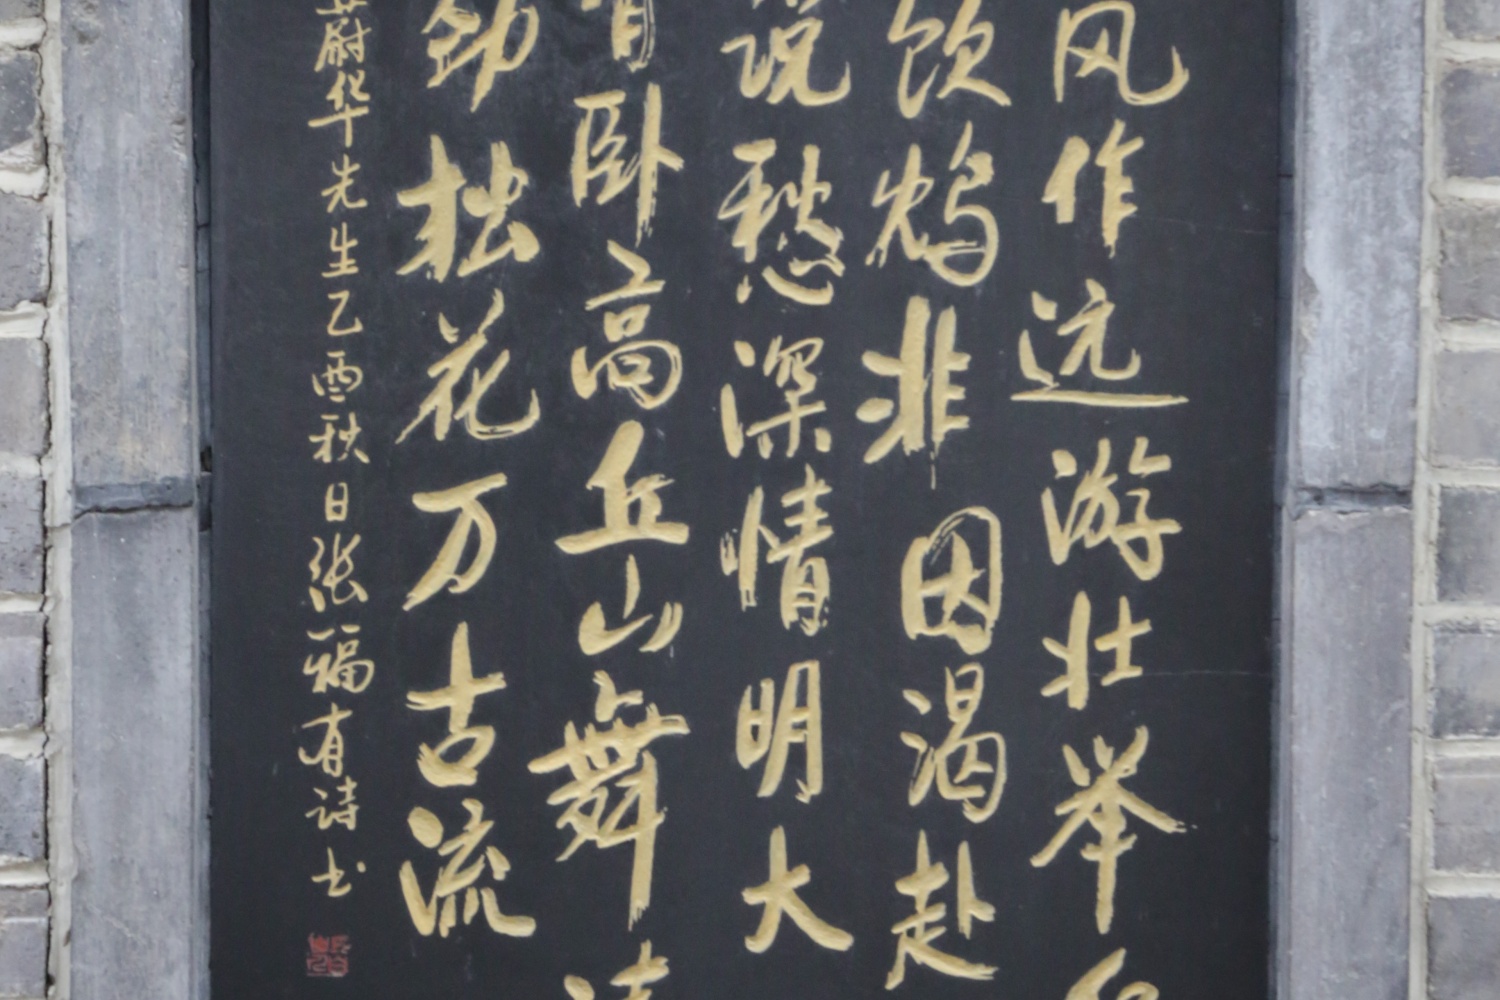 风作远游壮举
饮鸩非因渴赴
说愁深情明大
卧高丘山舞
劲拙花万古流
蔚华先生乙酉秋日张福有诗书